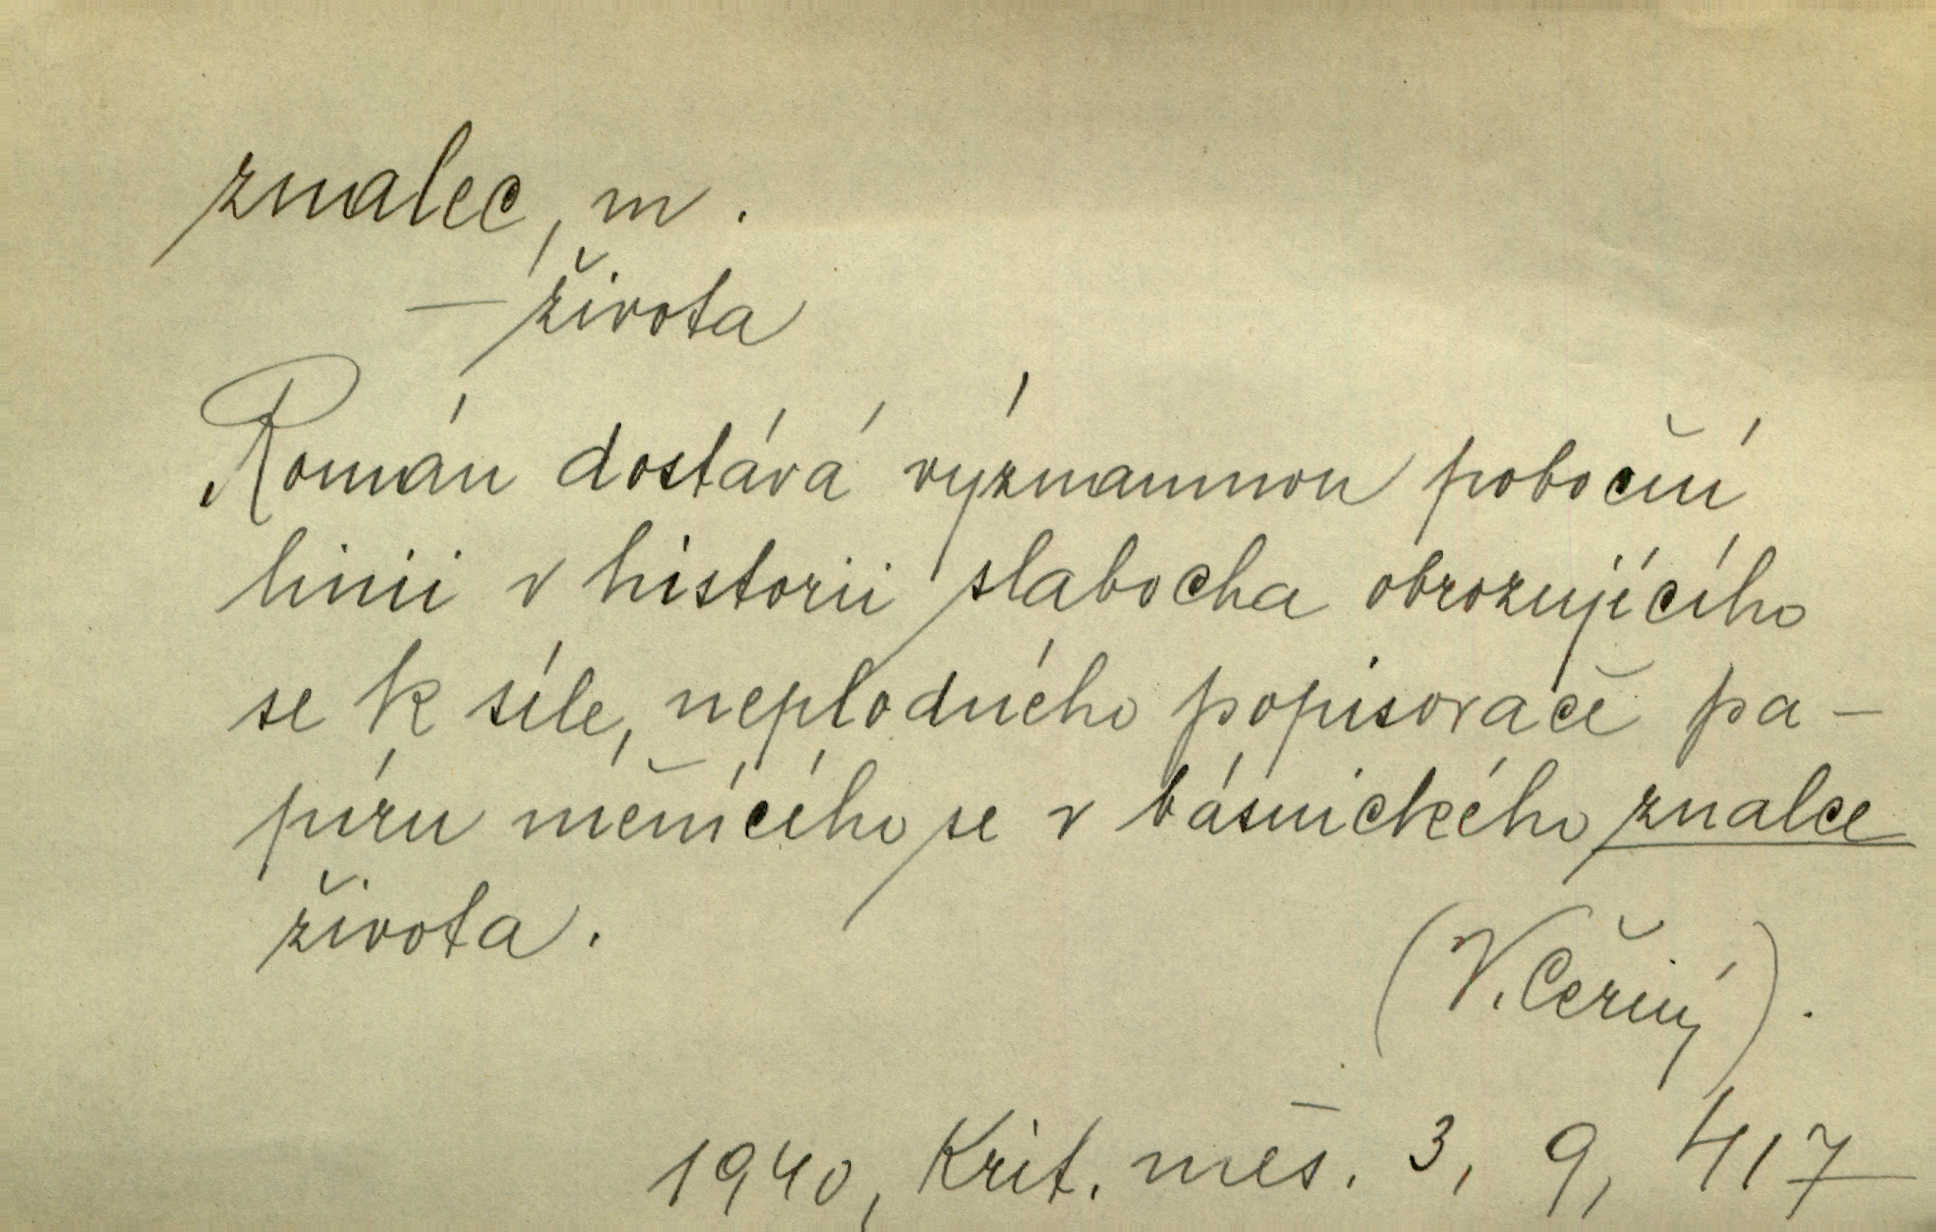 znalec, m.
— života
Román dostává významnou poboční
linii v historii slabocha obrozujícího
se k síle, neplodného popisovače pa-
píru měnícího se v básnického znalce
života.
(V. Černý).
1940, Krit. měs. 3, 9, 417